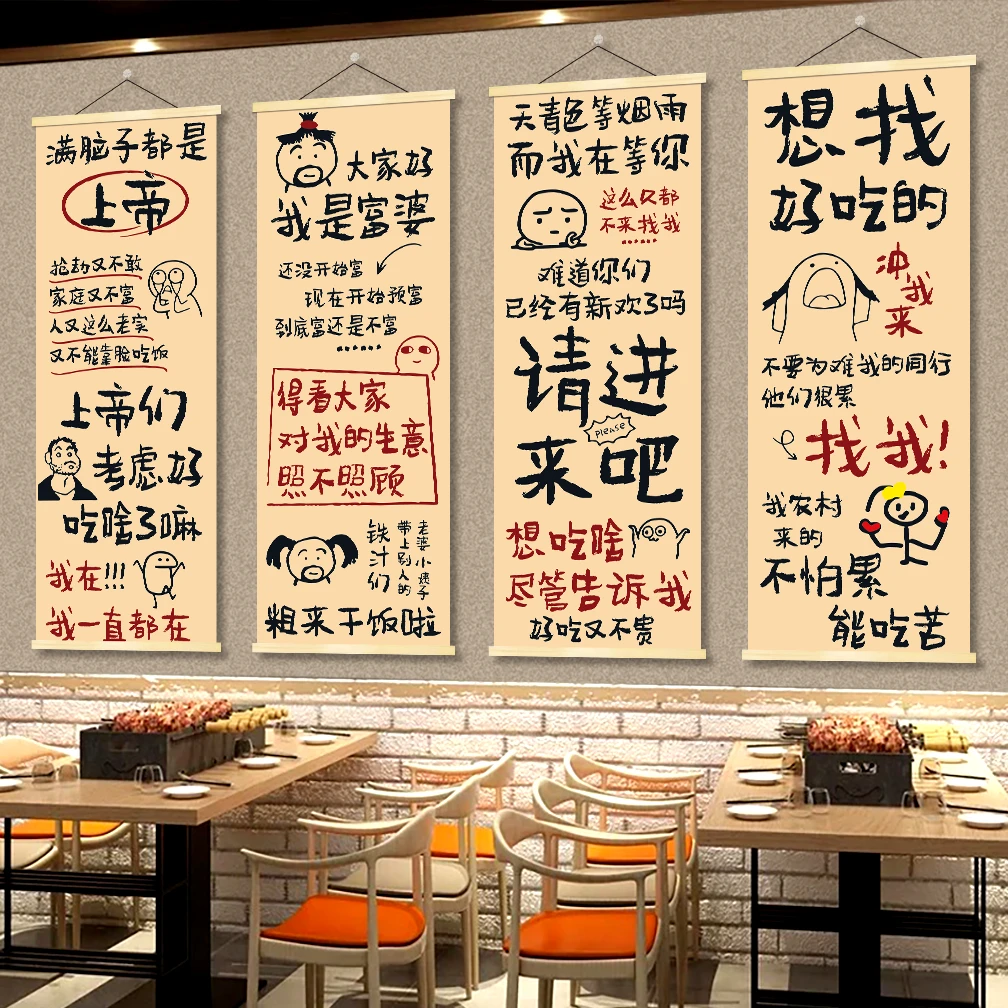 满脑子都是
上帝
抢劫又不敢
家庭又不富
人又这么老实
又不能靠脸吃饭
上帝们
考虑好
吃啥了嘛
我在!!!
我一直都在
大家好
我是富婆
还没开始富
现在开始预富
到底富还是不富
......
得看大家
对我的生意
照不照顾
铁汁们
带上别人的
老婆小孩子
粗来干饭啦
天青色等烟雨
而我在等你
这么久都
不来找我
......
难道你们
已经有新欢了吗
请进
please
来吧
想吃啥
尽管告诉我
好吃又不贵
想找
好吃的
冲我来
不要为难我的同行
他们很累
找我!
我农村
来的
不怕累
能吃苦